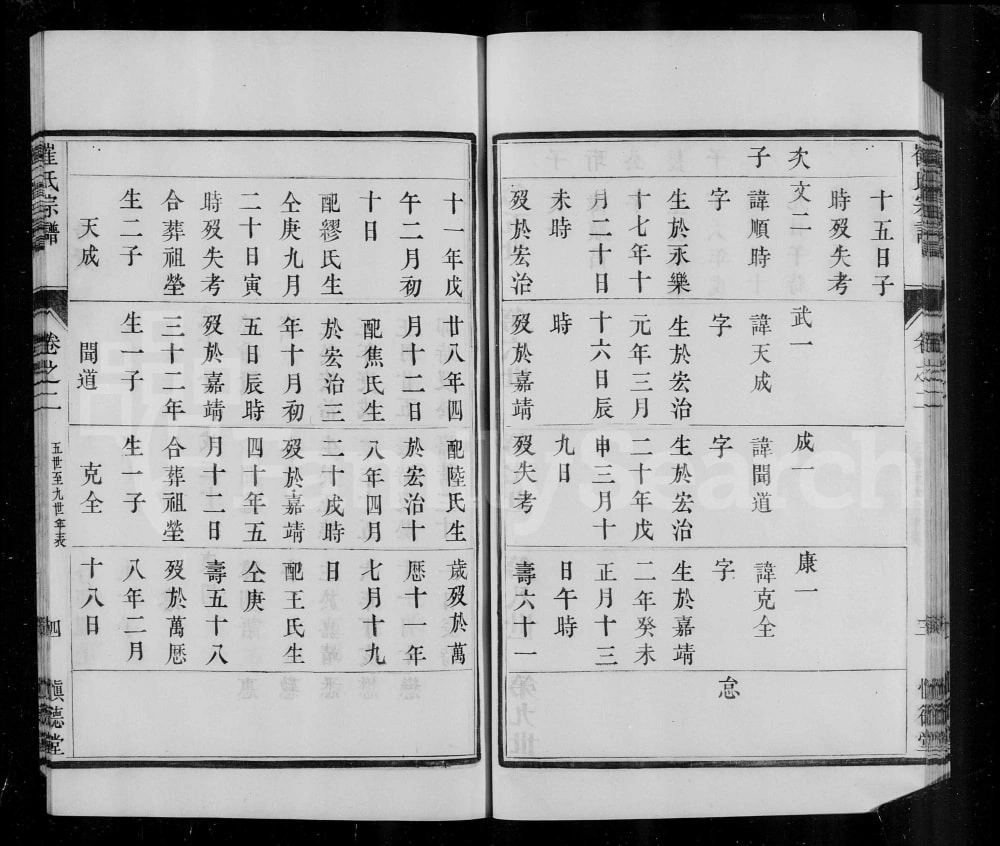 崔氏宗譜
卷之二
三
慎德堂
十五日子
時歿失考
次
文二
子
諱順時
字
生於永樂
十七年十
月二十日
未時
歿於宏治
武一
諱天成
字
生於宏治
元年三月
十六日辰
時
歿於嘉靖
成一
諱聞道
字
生於宏治
二十年戊
申三月十
九日
歿失考
康一
諱克全
字
生於嘉靖
二年癸未
正月十三
日午時
壽六十一
怠
十一年戊
午二月初
十日
配繆氏生
仝庚九月
二十日寅
時歿失考
合葬祖塋
生二子
天成
廿八年四
月十二日
配焦氏生
於宏治三
年十月初
五日辰時
歿於嘉靖
三十二年
生一子
聞道
配陸氏生
於宏治十
八年四月
二十戌時
歿於嘉靖
四十年五
月十二日
合葬祖塋
生一子
克全
歲歿於萬
厯十一年
七月十九
日
配王氏生
仝庚
壽五十八
歿於萬厯
八年二月
十八日
崔氏宗譜
卷之二
五世至九世年表
四
慎德堂
FamilySearch